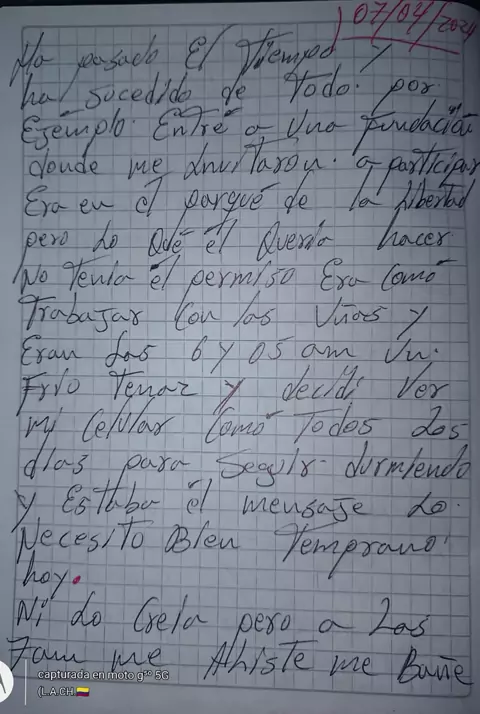 07/04/2024
Ha pasado El Tiempo y
ha sucedido de Todo. por
Ejemplo. Entré a Una Fundación
donde me invitarón. a participar
Era en el parqué de la Libertad
pero Lo Qué él Quería hacer
No Tenía él permiso Era Comó
Trabajar Con las Uñas y
Eran Las 6 y 05 am Un.
Frío Tenaz y decidí Ver
mi Celular Comó Todos Los
días para Seguir durmiendo
y Estaba él mensaje Lo.
Necesito Bien Temprano
hoy.
Ni Lo Creía pero a Las
7am me Aliste me Bañe
capturada en moto g⁰⁰ 5G
(L.A.CH.🇨🇴